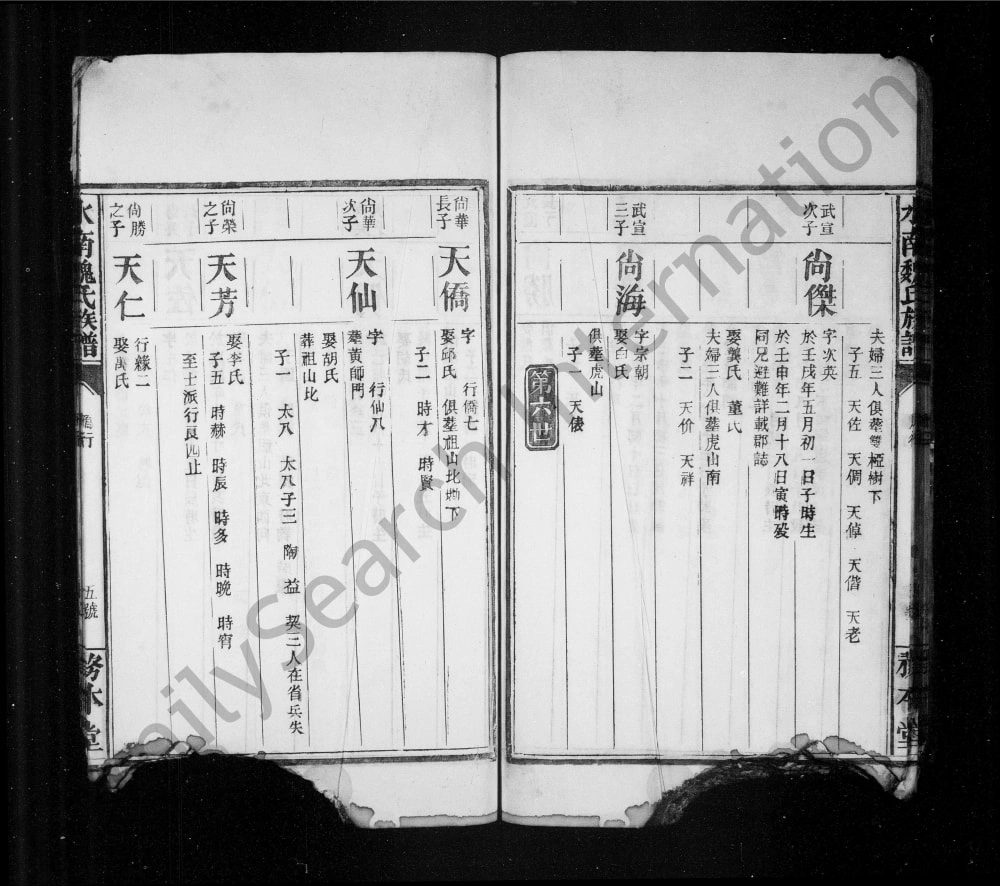 夫婦三人俱塟雙椏樹下
子五 天佐 天倜 天倬 天偕 天老
武宣次子
尙傑
字次英
於壬戌年五月初一日子時生
於壬申年二月十八日寅時殁
同兄避難詳載郡誌
娶龔氏 董氏
夫婦三人俱塟虎山南
子二 天价 天祥
武宣三子
尙海
字宗朝
娶白氏
俱塟虎山
子一 天俵
第六世
尙華長子
天僑
字 行僑七
娶邱氏 俱塟祖山比塝下
子二 時才 時賢
尙華次子
天仙
字 行仙八
塟黃師門
娶胡氏
葬祖山比
子一 太八 太八子三 陶 益 契三人在省兵失
尙榮之子
天芳
娶李氏
子五 時赫 時辰 時多 時晚 時宵
至士派行良四止
尙勝之子
天仁
行緣二
娶萬氏
水南魏氏族譜
五號
務本堂